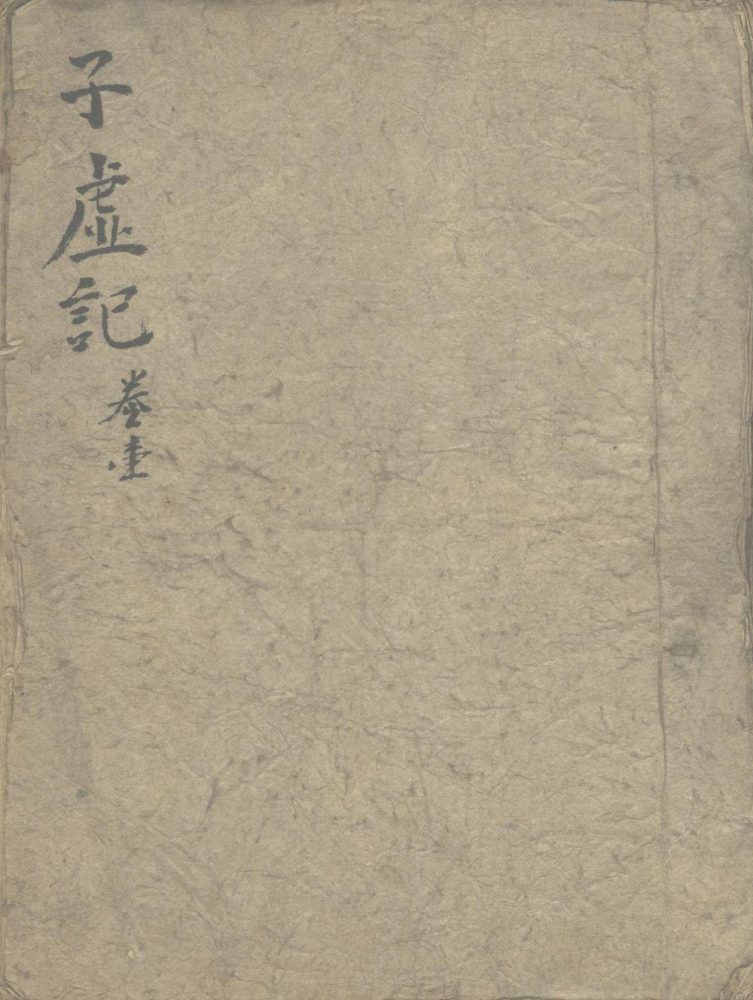 子虛記
卷壹